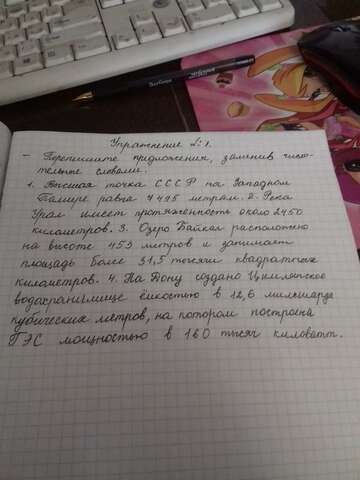 Упражнение №1.
- Перепишите предложения, заменив числи-
тельные словами.
1. Высшая точка СССР на Западном
Памире равна 7495 метрам. 2. Река
Урал имеет протяженность около 2450
километров. 3. Озеро Байкал расположено
на высоте 453 метров и занимает
площадь более 31,5 тысячи квадратных
километров. 4. На Дону создано Цимлянское
водохранилище ёмкостью в 12,6 миллиарда
кубических метров, на котором построена
ГЭС мощностью в 160 тысяч киловатт.